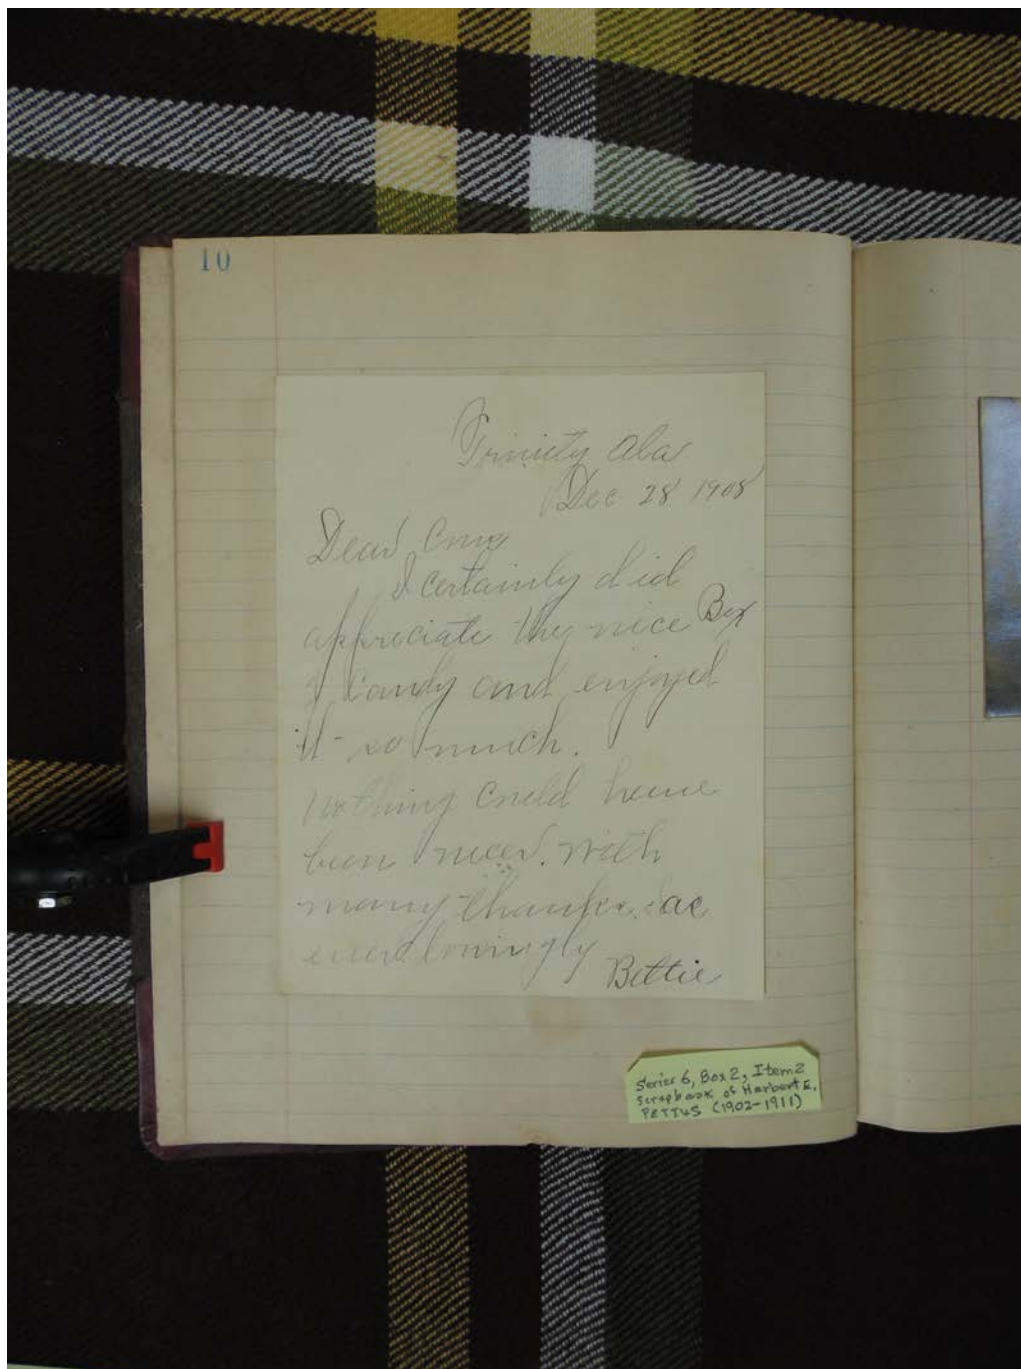 10
Trinity Ala
Dec 28 1908
Dear
I certainly did
appreciate the nice Box
of Candy and enjoyed
it so much.
Nothing could have
been nicer. with
many thanks. as
ever lovingly
Bettie
Series 6, Box 2, Item 2
Scrapbook of Herbert E.
PETTUS (1902-1911)